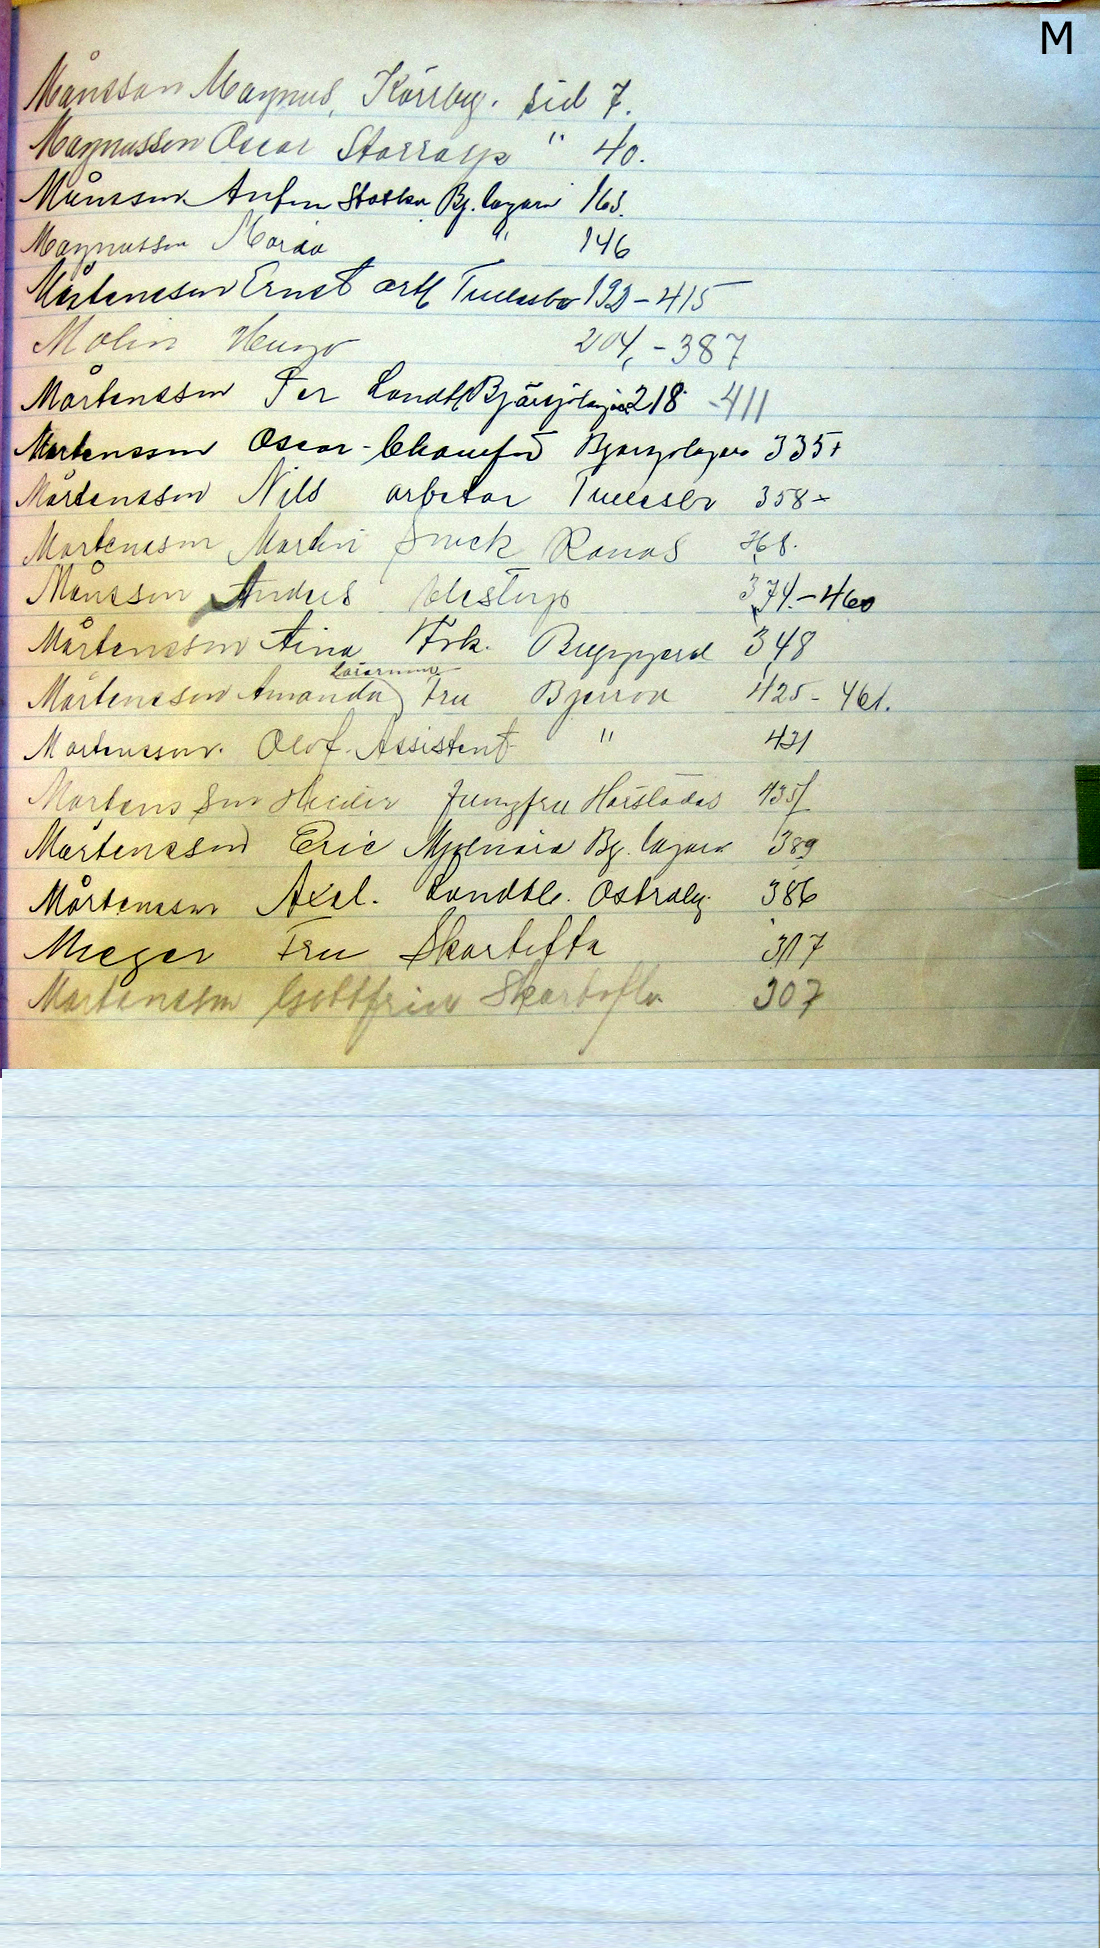 M
Månsson Magnus, Kärrby. sid 7.
Magnusson Oscar Storrarp " 40.
Månsson Anton Bj. lagård 163.
Magnusson Maria " 146
Mårtensson Ernst Tullesbo 192-415
Molin Hugo 204,-387
Mårtensson Per Landtb Bjärsjölagård 218 -411
Mårtensson Oscar - Chaufför Bjärsjölagård 335+
Mårtensson Nils arbetar Tullesbo 358-
Mårtensson Martin Smek Ranås 368.
Månsson Anders Vlestorp 374.-460
Mårtensson Aina Frk. Byggard 348
Lärarinna
Mårtensson Amanda) Fru Bjerröd 425- 461.
Mårtensson. Olof. Assistent " 431
Mårtensson Jungfru Harstadas 435
Mårtensson Eric Mjölnare Bj. lagård 389
Mårtensson Axel. Landtb. Östraby. 386
Mieger Fru Skartofta 317
Mårtensson Gottfrid Skartofta 307